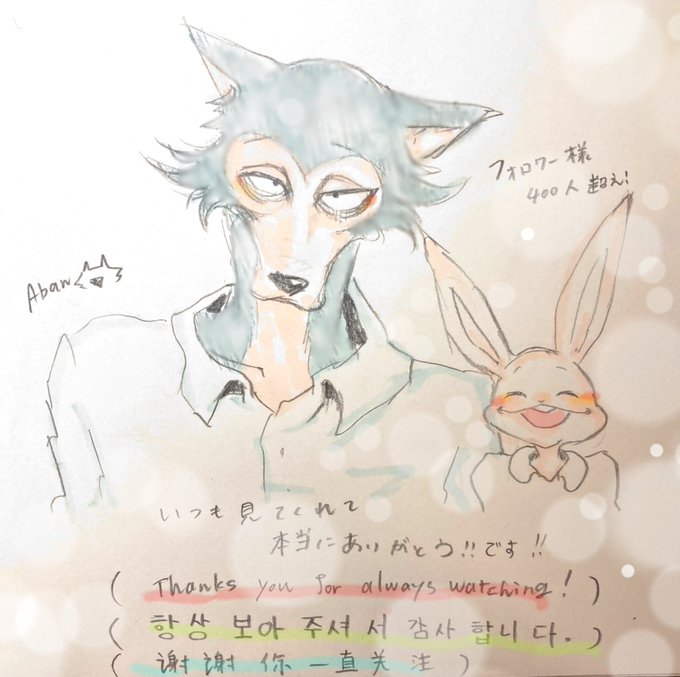 フォロワー様
400人超え!
Abaw
いつも見てくれて
本当にありがとう!!です!!
( Thanks you for always watching! )
( 항상 보아 주셔서 감사합니다. )
( 谢謝你一直关注 )